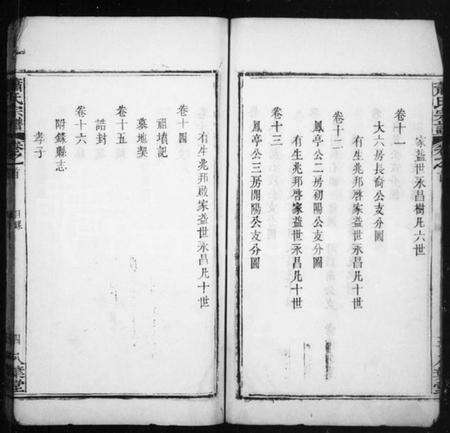 家益世永昌樹凡六世
卷十一
大六房長裔公支分圖
有生兆邦啓家益世永昌凡十世
卷十二
鳳亭公二房初陽公支分圖
有生兆邦啓家益世永昌凡十世
卷十三
鳳亭公三房開陽公支分圖
有生兆邦啟家益世永昌凡十世
卷十四
祖墳記
墓地契
卷十五
誥封
卷十六
附錄縣志
孝子
蕭氏宗譜
卷首
目錄
四
八葉堂